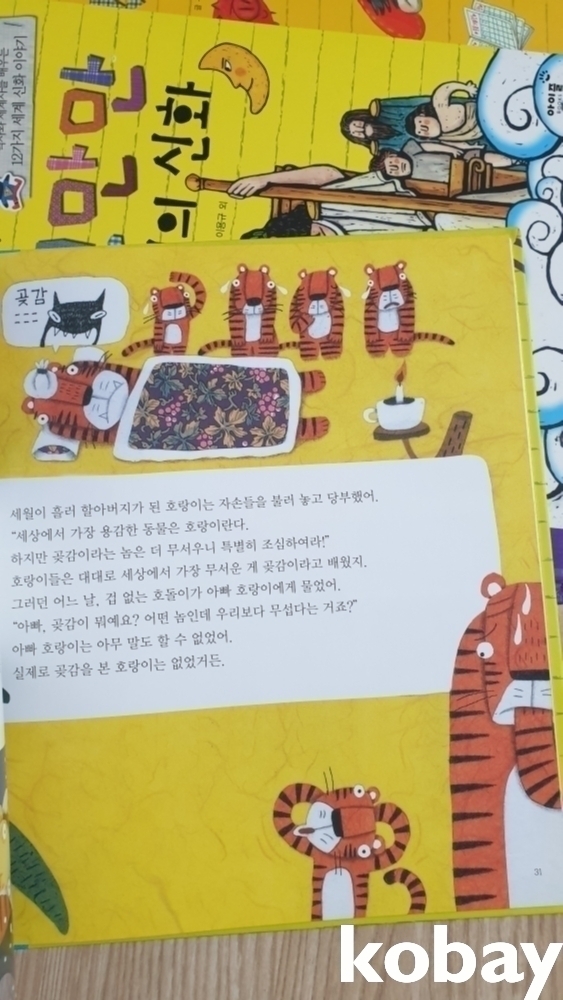 12가지 세계 신화 이야기
만만
의 신화
이용규 외
아이플
곶감
세월이 흘러 할아버지가 된 호랑이는 자손들을 불러 놓고 당부했어.
"세상에서 가장 용감한 동물은 호랑이란다.
하지만 곶감이라는 놈은 더 무서우니 특별히 조심하여라!"
호랑이들은 대대로 세상에서 가장 무서운 게 곶감이라고 배웠지.
그러던 어느 날, 겁 없는 호돌이가 아빠 호랑이에게 물었어.
"아빠, 곶감이 뭐예요? 어떤 놈인데 우리보다 무섭다는 거죠?"
아빠 호랑이는 아무 말도 할 수 없었어.
실제로 곶감을 본 호랑이는 없었거든.
31
kobay